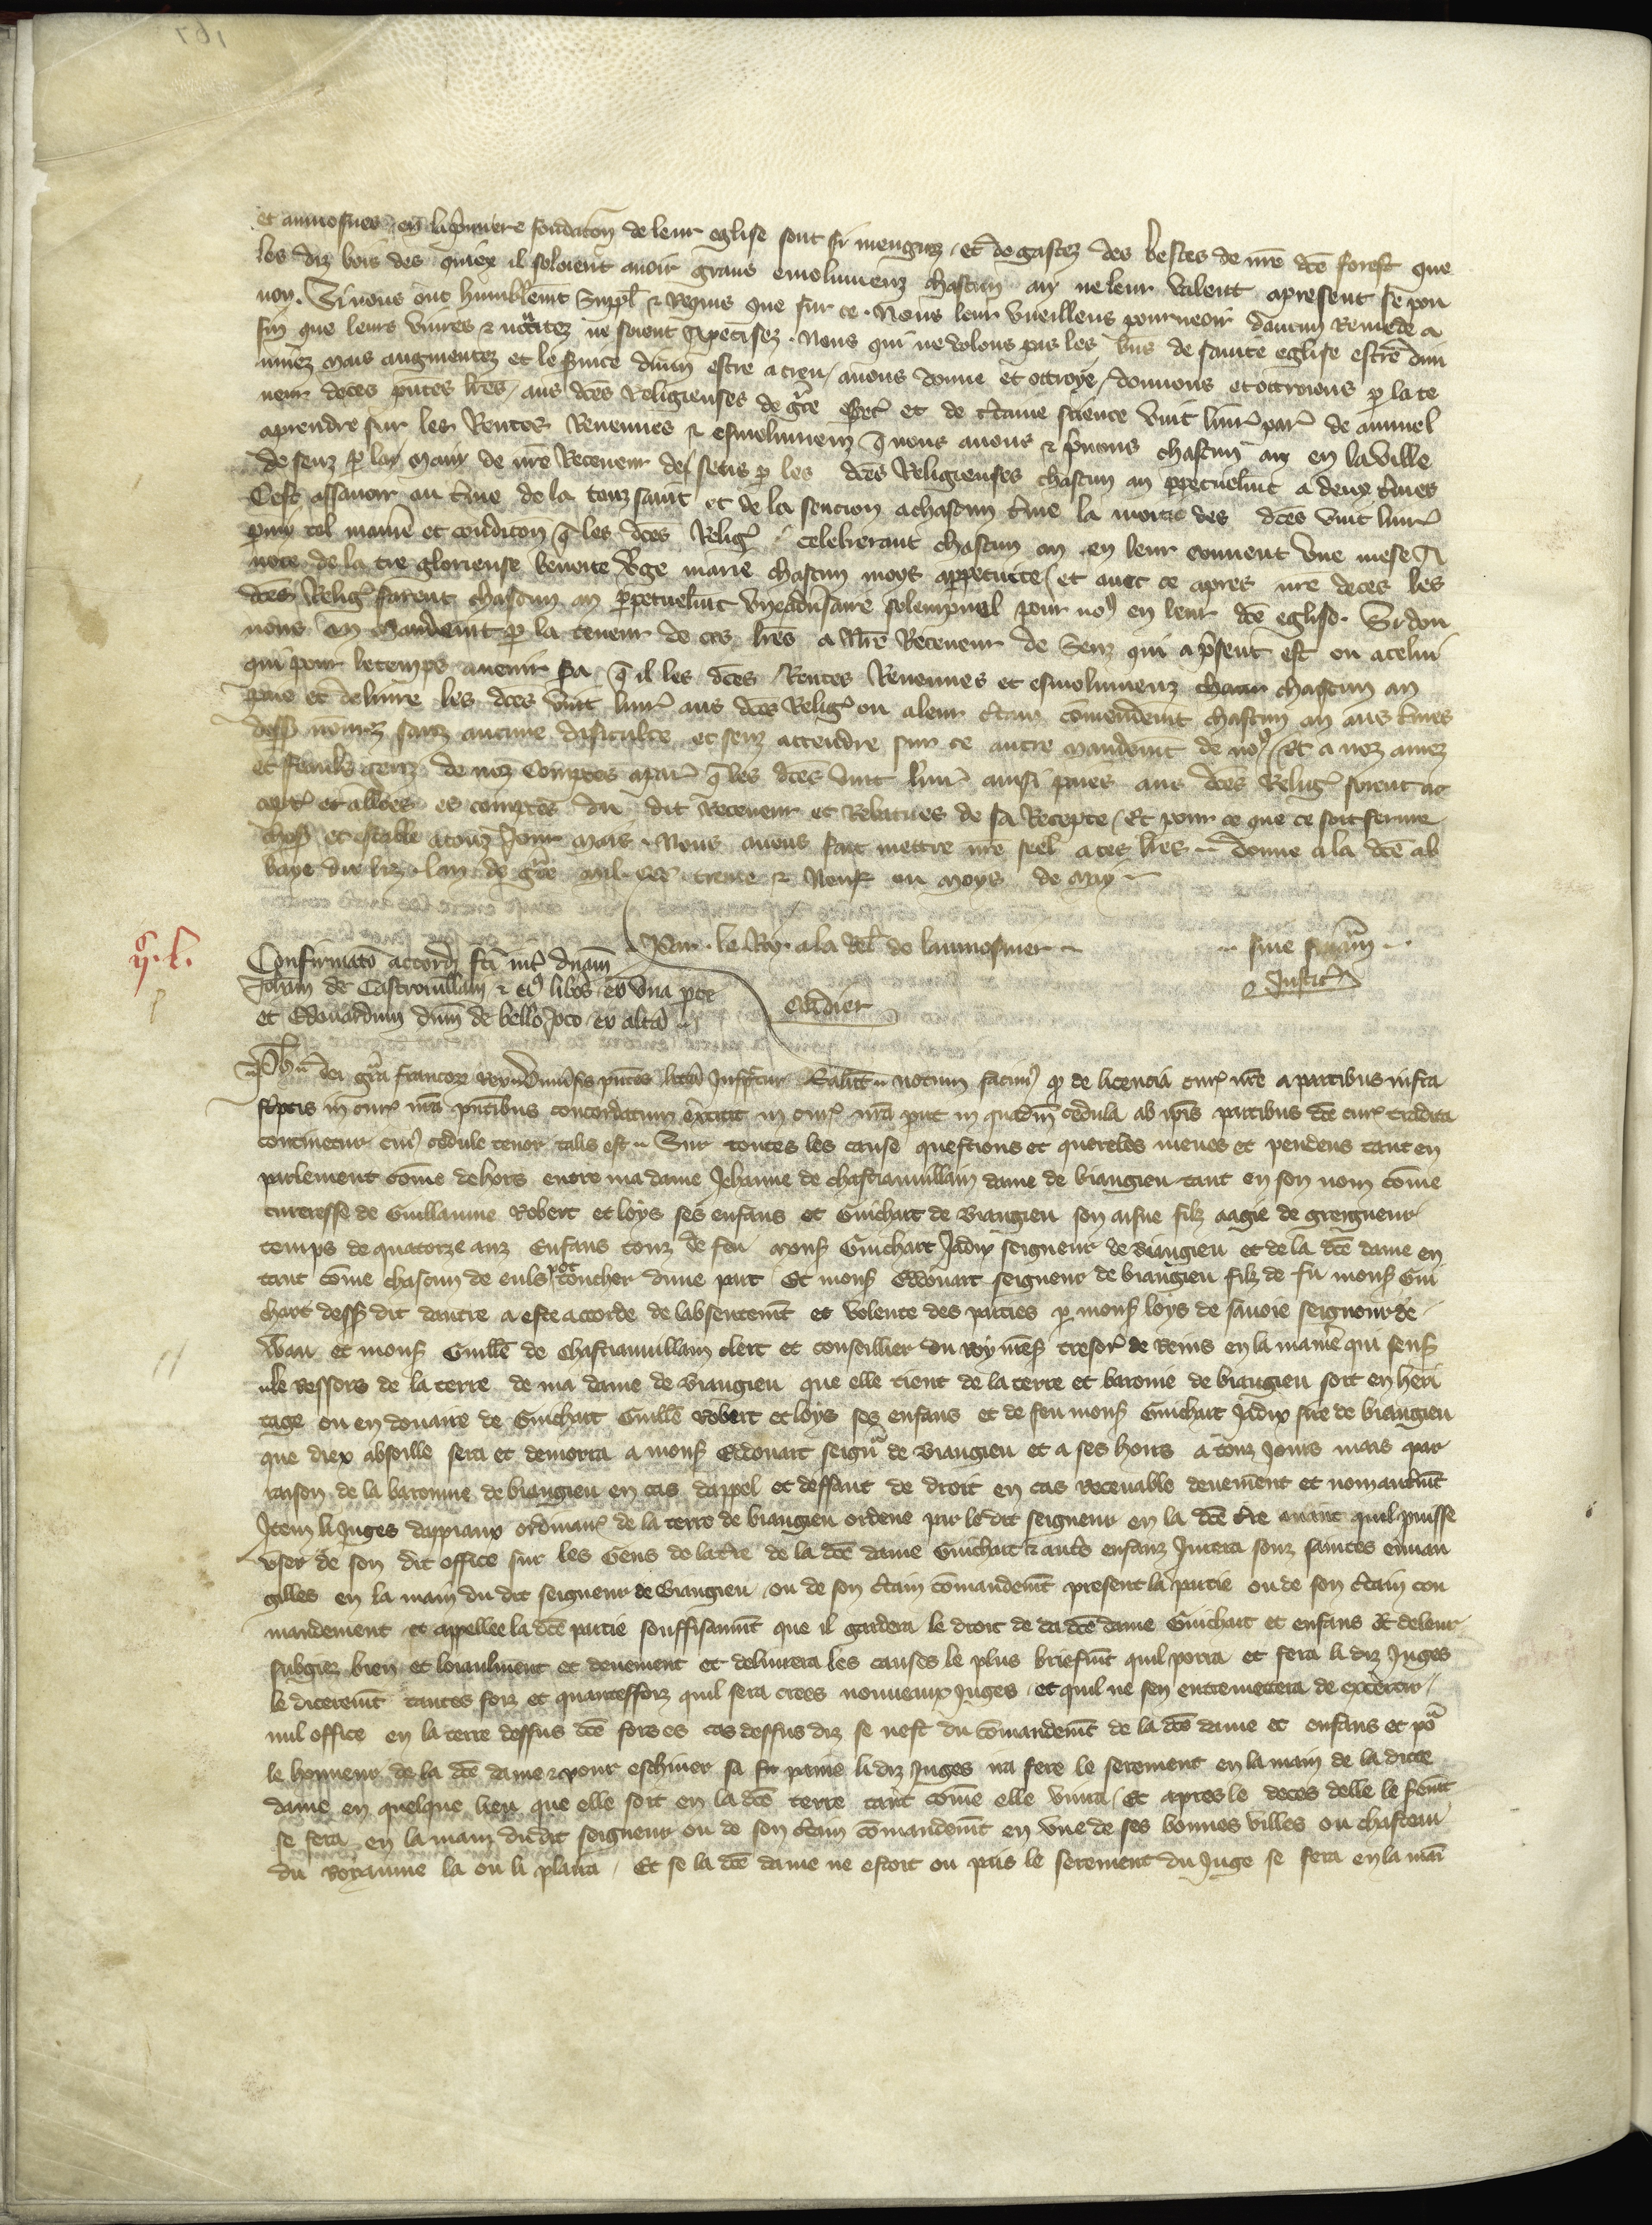 et aumosnes en la p̃miere fondac̃on de leur eglise sont si mengiez et degastez des bestes de nr̃e dc̃e forest que
les diz bois des quiex il soloient auoir grans emolumenz chascun an ne leur valent apresent se pou
non. Si nous ont humblem̃t suppl̃ & Requis que sur ce. Nous leur vueillens pourueoir daucun Remede a
fin que leurs viures & nec̃citez ne soient apeticisez. Nous qui ne volons pas les biens de sainte eglise estre dim
nuez mais augmentez et le s̃uice diuin estre acreu, auons donne et ottroye, donnons et ottroions p la te
neur de ces p̃ntes lr̃es, aus dc̃es Religieuses de gr̃ce esp̃cl et de c̃taine science vint liur̃ par̃ de annuel
aprendre sur les Rentes Reuenues & esmolumenz q̃ nous auons & p̃nons chascun an en la ville
de Senz p la main de nr̃e Receueur de Senz p les dc̃es Religieuses chascun an ppetuelm̃t a deux t̃mes
Cest assauoir au t̃me de la touz sainz et de la scencion a chascun t̃me la moitie des dc̃es vint liur̃
p̃mi tel maniẽ et condic̃on q̃ les dc̃es Relig̃ celebreront chascun an en leur couuent vne messe a
note de la tre glorieuse benoite v̾ge marie chascun moys appetuite, et auec ce apres nr̃e deces les
dc̃es Relig̃ feront chascun an ppetuelm̃t vn aduersaire solempnel pour noꝰ en leur dc̃e eglise. Si don
nons en mandem̃t p la teneur de ces lr̃es a nr̃e Receueur de Senz qui ap̃sent est ou a celui
qui pour le temps auenir s̃a q̃ il les dc̃es Rentes Reuenues et esmolumenz chascun an
paie et deliure les dc̃es vint liur̃ aus dc̃es Relig̃ ou a leur c̃tain com̃endem̃t chascun an aus t̃mes
dessꝰ nom̃ez sanz aucune dificulte et senz attendre sur ce autre mandem̃t de noꝰ. Et a noz amez
et feaulx genz de noz Comptes apar̃ q̃ les dc̃es vint liur̃ ainsi paies aus dc̃es Relig̃ soient ac
cept̃ et alloees es comptes du dit Receueur et Rebatues de sa Recepte. Et pour ce que ce soit ferme
chose et estable a touz Jours mais. Nous auons fait mettre nr̃e seel a ces lr̃es. Donne a la dc̃e ab
baye du liz. lan de gr̃ce mil. ccc̃ trente & Neuf ou moys de may
Par le Roy. a la rel̃ de laumosnier
sine financia
Justic̃
Confirmac̃o accordj fc̃i int̾ dñam
Joh̃am de Castrouillani & eiꝰ libos ex vna pte
et Edouardum dñm de bello Joco ex alt̾a
Verdier
Ph̃s dei gr̃a francorꝫ rex. Vniu̾sis p̃ntes litt̾as Inspect̾is. Salt̃m. notum facimꝰ qꝫ de licencia cur̃ nr̃e a partibus infra
sc̃ptis in cur̃ nr̃a p̃ntibus concordatum extitit in cur̃ nr̃a put in quadm̃ cedula ab ip̃is partibus dc̃e cur̃ tradita
continetur cuiꝰ cedule tenor talis est. Sur toutes les cause questions et quereles meues et pendens tant en
parlement com̃e dehors entre ma dame Jehanne de chastiauuillain dame de biaugieu tant en son nom com̃e
tuteresse de Guillaume Robert et loys ses enfans et Guichart de Biaugieu son aisne filz aagie de greigneur
temps de quatorze anz Enfans touz de feu monsꝰ Guichart Jadix seigneur de Biaugieu et de la dc̃e dame en
tant com̃e chascun de euls pot toucher dune part Et monsꝰ Edouart seigneur de biaugieu filz de fu monsꝰ Gui
chart dessꝰ dit dautre a este accorde de labsentem̃t et volente des parties p monsꝰ loys de sauoie seigneur de
Waut et monsꝰ Guill̃e de Chastiauuillain clerc et conseillier du roy nr̃esꝰ tresor̃ de Reins en la maniẽ qui sensꝰ
le Ressors de la terre de ma dame de Biaugieu que elle tient de la terre et baronie de biaugieu soit en heri
tage ou en douaire de Guichart Guill̃e Robert et loys ses enfans et de feu monsꝰ Guichart Jadix sire de biaugieu
que diex absoille sera et demorra a monsꝰ Edouart seigñr de Biaugieu et a ses hoirs a touz Jours mais par
raison de la baronnie de biaugieu en cas dappel et deffaut de droit en cas receuable deuem̃ent et non autrem̃t
Item li Juges dappiaux ordinair̃ de la terre de biaugieu ordene par le dit seigneur en la dc̃e tr̃e auant quil puisse
vser de son dit office sur les Gens de la tr̃e de la dc̃e dame Guichart & aut̾s enfanz Jurera souz saintes euuan
gilles en la main du dit seigneur de Biaugieu ou de son c̃tain com̃andem̃t present la partie ou de son c̃tain con
mandement et appellee la dc̃e partie souffisam̃nt que il gardera le droit de la dc̃e dame Guichart et enfans & de leur
subgiez bien et loiaulment et deuement et deliurera les causes le plus briefm̃t quil porra et fera li diz Juges
le dit serem̃t toutes foiz et quantesfoiz quil sera crees nouueaux Juges et quil ne sen entremettera de excercer
nul office en la terre dessus dc̃e fors es cas dessus diz se nest du com̃andem̃t de la dc̃e dame et enfans et po̾
le honneur de la dc̃e dame & pour eschiuer sa paine li diz Juges ira fere le serement en la main de la dicte
dame en quelque lieu que elle soit en la dc̃e terre tant com̃e elle viura. Et apres le deces delle le sem̃t
se fera en la main du dit seigneur ou de son c̃tain com̃andem̃t en vne de ses bonnes villes ou chasteau
du Royaume la ou li plaira. Et se la dc̃e dame ne estoit ou pais le serement du Juge se fera en la mai